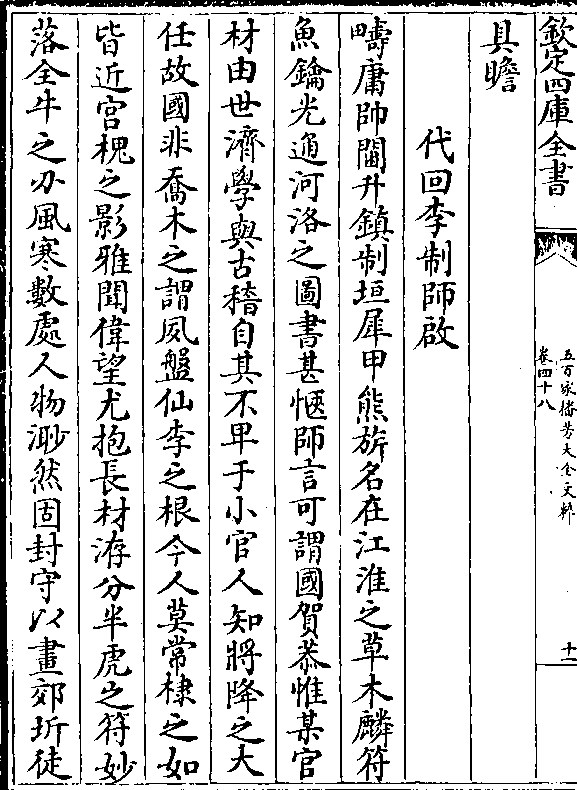 欽定四庫全書
五百家播芳大全文粹
卷四十八
十一
具瞻
代回李制師啟
疇庸帥閫升鎮制垣犀甲熊旂名在江淮之草木麟符
魚鑰光通河洛之圖書甚愜師言可謂國賀恭惟某官
材由世濟學與古稽自其不卑于小官人知將降之大
任故國非喬木之謂夙盤仙李之根今人莫常棣之如
皆近宫槐之影雅聞偉望尤抱長材洊分半虎之符妙
落全牛之刃風寒數處人物渺然固封守以畫郊圻徒